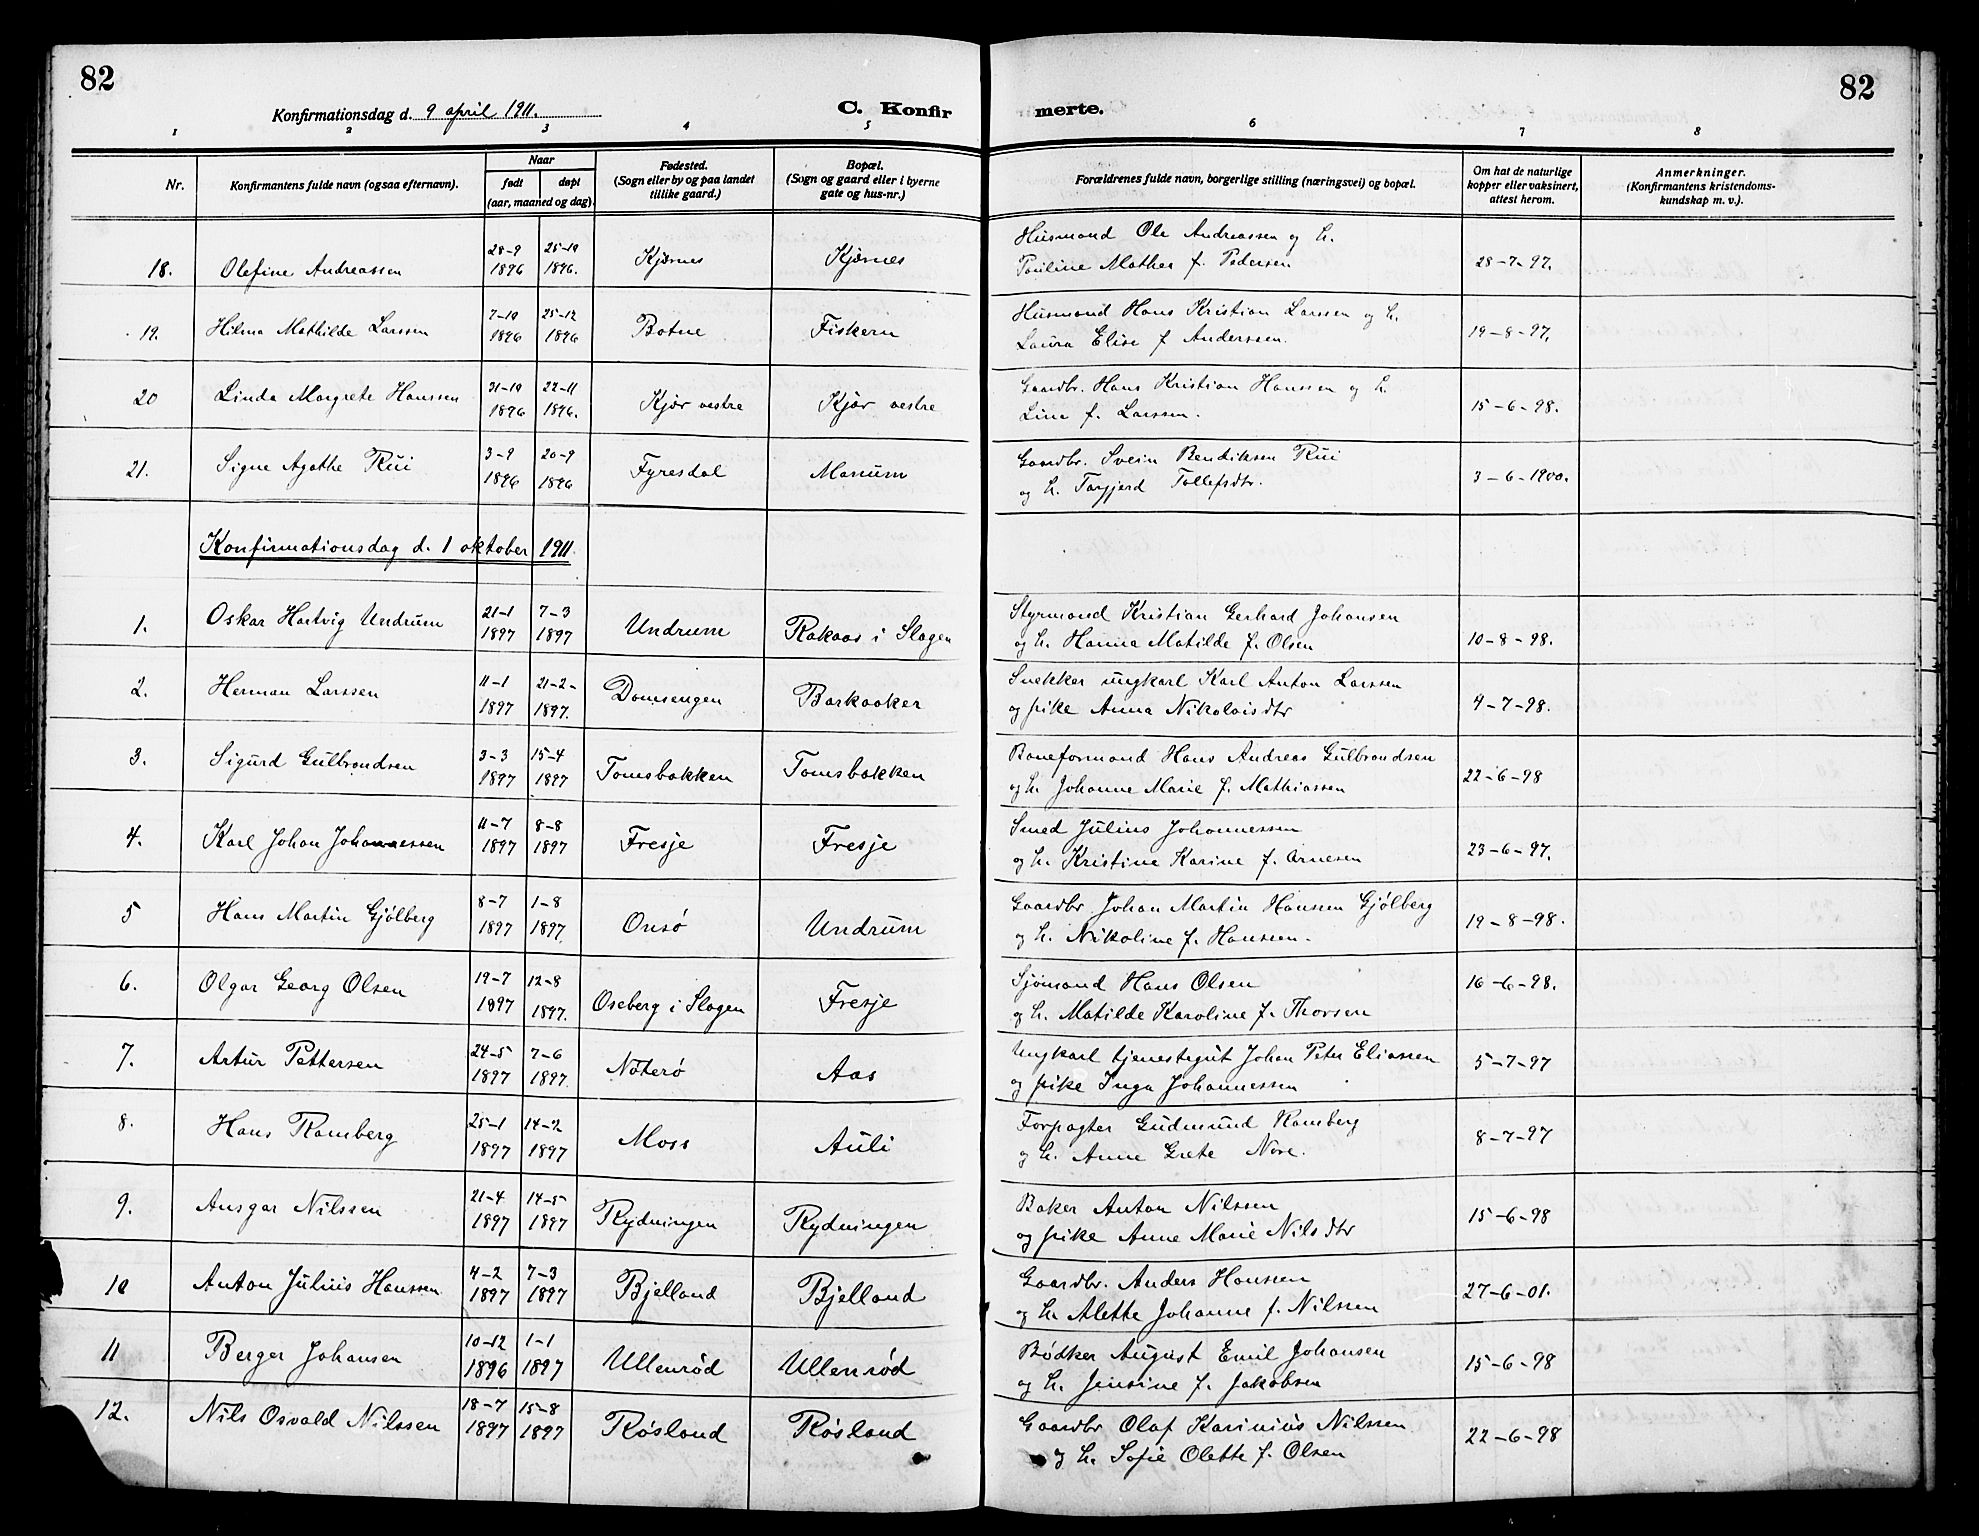 82
82
Konfirmationsdag d. 9 april 1911.
C. Konfir
merte.
1 2 3 4 5 6 7 8
Nr.
Konfirmantens fulde navn (og saa efternavn).
Naar
født
døpt
(aar, maaned og dag).
Fødested.
(Sogn eller by og paa landet
tillike gaard.)
Bopæl.
(Sogn og gaard eller i byerne
gate og hus-nr.)
Forældrenes fulde navn, borgerlige stilling (næringsvei) og bopæl.
Om hat de naturlige
kopper eller vaksinert,
attest herom.
Anmerkninger.
(Konfirmantens kristendoms-
kundskap m. v.).
18. Olefine Andreassen 28-9 1896 25-10 1896. Kjærnes Kjærnes
Husmand Ole Andreassen og h.
Pauline Mathea f. Pedersen 28-7-97.
19. Hilma Mathilde Larssen 7-10 1896 25-12 1896 Botne Fiskern
Husmand Hans Kristian Larssen og h.
Laura Elise f Anderssen. 19-8-97.
20 Linda Margrete Hanssen 31-10 1896 22-11 1896. Kjær vestre Kjær vestre
Gaardbr. Hans Kristian Hanssen og h.
Line f. Larssen. 15-6-98.
21. Signe Agathe Rui 3-9 1896 20-9 1896 Fyresdal Manum
Gaardbr. Svein Bendiksen Rui
og h. Targjerd Tollefsdtr. 3-6-1900.
Konfirmationsdag d. 1 oktober 1911.
1. Oskar Hartvig Undrum 21-1 1897 7-3 1897 Undrum Rakaas i Slagen
Styrmand Kristian Gerhard Johansen
og h. Hanna Matilde f. Olsen 10-8-98.
2. Herman Larssen 11-1 1897 21-2- 1897. Domsengen Barkaaker
Snekker ungkarl Karl Anton Larssen
og pike Anna Nikolaisdtr 4-7-98.
3. Sigurd Gulbrandsen 3-3 1897 15-4 1897 Tomsbakken Tomsbakken
Baneformand Hans Andreas Gulbrandsen
og h. Johanne Marie f. Mathiassen 22-6-98
4. Karl Johan Johannessen 11-7 1897 8-8 1897 Fresje Fresje
Smed Julius Johannessen
og h. Kristine Karine f. Arnesen 23-6-97.
5 Hans Martin Gjølberg 8-7 1897 1-8 1897. Onsø Undrum
Gaardbr Johan Martin Hansen Gjølberg
og h. Nikoline f. Hanssen. 19-8-98.
6. Olgar Georg Olsen 19-7 1897 12-8 1897. Oseberg i Slagen Fresje
Sjømand Hans Olsen
og h. Matilde Karoline f. Thorsen 16-6-98.
7. Artur Pettersen 24-5 1897 7-6 1897. Nøterø Aas
Ungkarl tjenestegut Johan Peter Eliassen
og pike Inga Johannessen 5-7-97
8. Hans Ramberg 25-1 1897 14-2 1897 Moss Auli
Forpagter Gudmund Ramberg
og h. Anne Grete Nore. 8-7-97
9. Ansgar Nilssen 21-4 1897 14-5 1897 Rydningen Rydningen
Baker Anton Nilssen
og pike Anne Marie Nilsdtr 15-6-98
10 Anton Julius Hanssen 4-2 1897 7-3 1897 Bjelland Bjelland
Gaardbr. Anders Hanssen
og h. Alette Johanne f. Nilssen 27-6-01.
11 Berger Johansen 10-12 1896 1-1 1897 Ullenrød Ullenrød
Bødker August Emil Johansen
og h. Jensine f. Jakobsen 15-6-98
12. Nils Osvald Nilssen 18-7 1897 15-8 1897 Røsland Røsland
Gaardbr Olaf Karinius Nilssen
og h. Sofie Olette f. Olsen 22-6-98